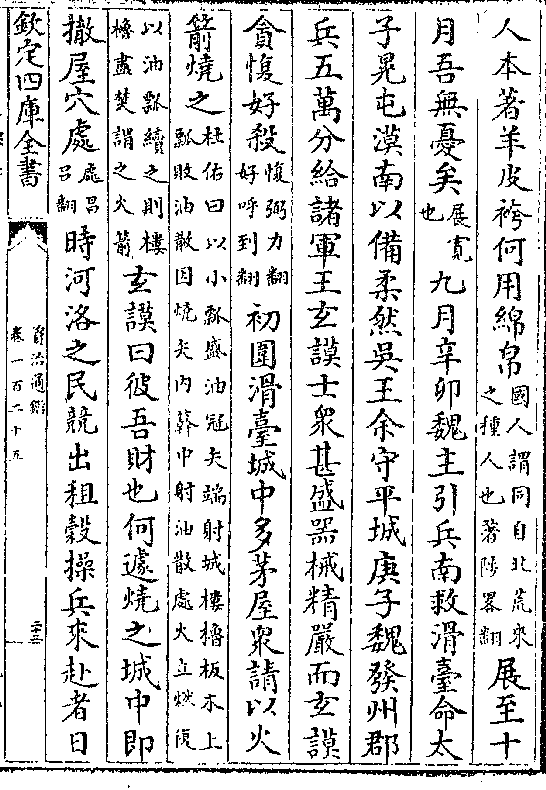 人本著羊皮袴何用綿帛國人謂同自北荒來
之種人也著陟畧翻展至十
月吾無憂矣展寛
也九月辛卯魏主引兵南救滑臺命太
子晃屯漠南以備柔然吳王余守平城庚子魏發州郡
兵五萬分給諸軍王玄謨士衆甚盛器械精嚴而玄謨
貪愎好殺愎弼力翻
好呼到翻初圍滑臺城中多茅屋衆請以火
箭燒之杜佑曰以小瓢盛油冠矢端射城樓櫓板木上
瓢敗油散因燒矢内簳中射油散處火立燃復
以油瓢續之則樓
櫓盡焚謂之火箭玄謨曰彼吾財也何遽燒之城中即
撤屋穴處處昌
呂翻時河洛之民競出租榖操兵來赴者日
欽定四庫全書
資治通鑑
卷一百二十五
二十三